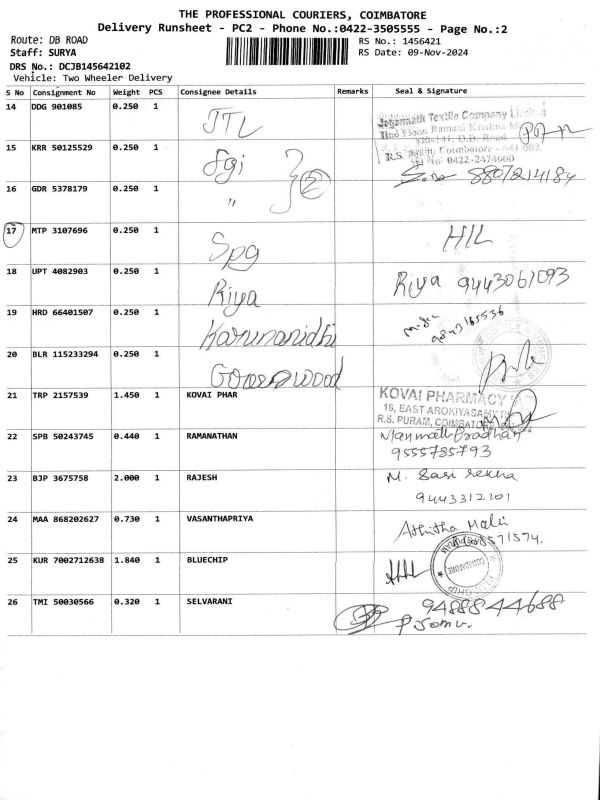 THE PROFESSIONAL COURIERS, COIMBATORE
Delivery Runsheet - PC2 - Phone No.:0422-3505555 - Page No.:2
Route: DB ROAD
RS No.: 1456421
Staff: SURYA
RS Date: 09-Nov-2024
DRS No.: DCJB145642102
Vehicle: Two Wheeler Delivery
S No Consignment No Weight PCS Consignee Details Remarks Seal & Signature
14 DDG 901085 0.250 1 JTL
Jagannath Textile Company Limited
IInd Floor, Ramani Krishna
D.B. Road
R.S. Coimbatore - 641 002.
0422-2474000
15 KRR 50125529 0.250 1 Sgi 2 8807214184
16 GDR 5378179 0.250 1 "
17 MTP 3107696 0.250 1 Spg HIL
18 UPT 4082903 0.250 1 Riya Riya 9443061093
19 HRD 66401507 0.250 1 Karunanidhi 9843165536
20 BLR 115233294 0.250 1
21 TRP 2157539 1.450 1 KOVAI PHAR
KOVAI PHARMACY
16, EAST AROKIYASAMY
R.S. PURAM, COIMBATORE
22 SPB 50243745 0.440 1 RAMANATHAN Manmath Pradhan
9555785793
23 BJP 3675758 2.000 1 RAJESH M. Sasi rekha
9443312101
24 MAA 868202627 0.730 1 VASANTHAPRIYA
25 KUR 7002712638 1.840 1 BLUECHIP COIMBATORE
26 TMI 50030566 0.320 1 SELVARANI 9488844688